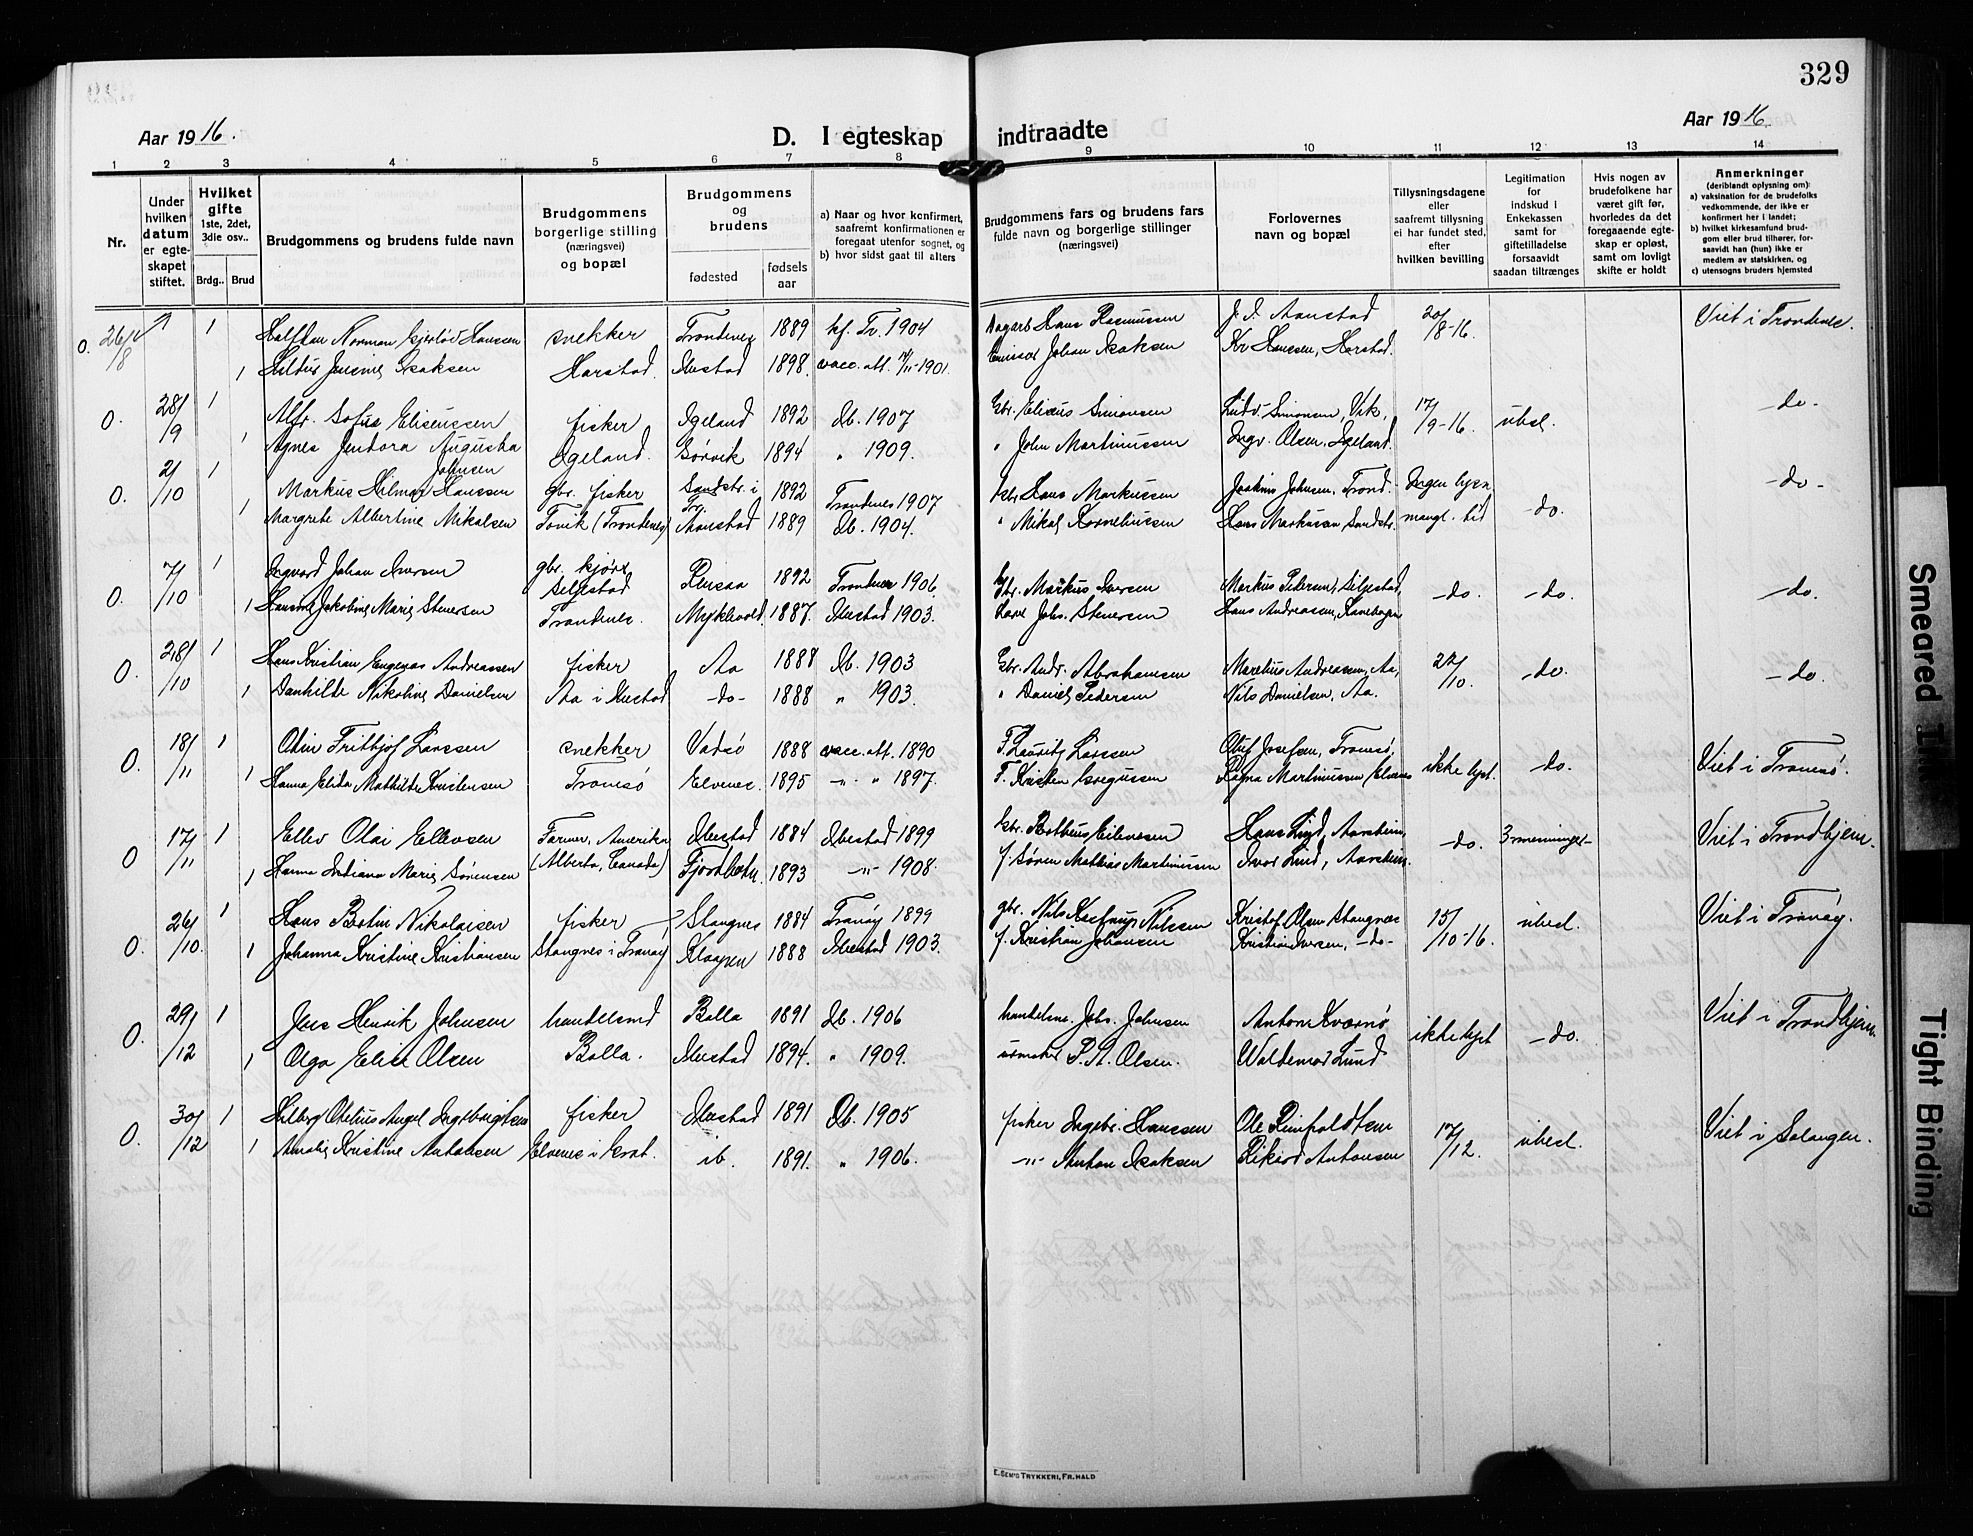 329
Aar 1916.
D. I egteskap indtraadte
Aar 1916.
1 2 3 4 5 6 7 8 9 10 11 12 13 14
Nr.
Under hvilken datum er egteskapet stiftet.
Hvilket gifte 1ste, 2det, 3die osv..
Brdg.. Brud
Brudgommens og brudens fulde navn
Brudgommens borgerlige stilling (næringsvei) og bopæl
Brudgommens og brudens
fødested
fødsels aar
a) Naar og hvor konfirmert, saafremt konfirmationen er foregaat utenfor sognet, og
b) hvor sidst gaat til alters
Brudgommens fars og brudens fars fulde navn og borgerlige stillinger (næringsvei)
Forlovernes navn og bopæl
Tillysningsdagene eller saafremt tillysning ei har fundet sted, efter hvilken bevilling
Legitimation for indskud i Enkekassen samt for giftetilladelse forsaavidt saadan tiltrænges
Hvis nogen av brudefolkene har været gift før, hvorledes da det foregaaende egteskap er opløst, samt om lovligt skifte er holdt
Anmerkninger
(deriblandt oplysning om):
a) vaksination for de brudefolks vedkommende, der ikke er konfirmert her i landet;
b) hvilket kirkesamfund brudgom eller brud tilhører, forsaavidt han (hun) ikke er medlem av statskirken, og
c) utensogns bruders hjemsted
0. 26/8 1 Halfdan Norman Hanssen snekker Trondenes 1889 kf. Tr. 1904 Hans Rasmussen J. J. Aanstad 20/8-16. Viet i Trondenes.
1 Isaksen Harstad. Ibestad 1898. vacc. att. 1901. Johan Isaksen Hanssen, Harstad.
0. 28/9 1 Alfr. Sofus Eliseussen fisker Igeland 1892 Ib. 1907 Gbr. Eliseus Simonsen Ludv. Simonsen, Vik, 17/9-16. ubesl. -do-
1 Agnes Jendora Augusta Johnsen Igeland. Gørvik 1894 " 1909. " John Martinussen Ingv. Olsen, Igeland.
0. 2/10 1 Markus Hilmar Hanssen gbr. fisker Sandstr. i Tr. 1892 Trondenes 1907 Gbr. Hans Markussen Joakim Johnsen, Trond. Ingen lysn. -do. -do-
1 Margrete Albertine Mikalsen Tovik (Trondenes) Aanstad 1889 Ib. 1904. " Mikal Korneliussen Hans Markussen, Sandstr. mangl. tid
0. 7/10 1 Ingvard Johan Iversen gbr. Rensaa 1892 Trondenes 1906. Gbr. Markus Iversen Markus Pedersen, Siljestad, -do. -do. -do.
1 Jakobine Marie Stenersen Siljestad Trondenes. 1887. Ibestad 1903. Johs. Stenersen Hans Andreassen,
0. 28/10 1 Hans Kristian Andreassen fisker Aa 1888 Ib. 1903 Gbr. Andr. Abrahamsen Andreassen, Aa, 22/10. -do. -do.
1 Danhilde Nikoline Danielsen Aa i Ibestad -do- 1888 " 1903. " Daniel Pedersen Nils Danielsen, Aa.
0. 18/11 1 Odin Fritbjof Larssen snekker Vadsø 1888 vacc. att. 1890 F. Lauritz Larssen Oluf Josefsen, Tromsø, ikke lyst. -do. Viet i Tromsø.
1 Hanna Elida Mathilde Kristensen Tromsø Elvenes 1895 -"- " 1897. F. Kristen Ragna Martinussen, Elvenes
0 17/11 1 Ellev Olai Ellevsen Farmer, Amerika Ibestad 1884 Ibestad 1899 Hans Lind, Aarstein, -do. 3 menninger- Viet i Trondhjem.
1 Hanna Indiana Marie Sørensen (Alberta, Canada) Fjordbotn. 1893 -"- 1908. f. Søren Mathias Martinussen Ivar Lund, Aarstein.
0. 26/10. 1 Hans Bertin Nikolaisen fisker Stangnes 1884 Tranøy 1899 gbr. Nils Nilssen Kristof. Olsen Stangnes 15/10-16. ubesl. Viet i Tranøy.
1 Johanna Kristine Kristiansen Stangnes i Tranøy Klaapen 1888 Ibestad 1903. f. Kristian Johansen Kristian Iversen, -do-
0. 29/12 1 Jens Henrik Johnsen handelsmd Bolla 1891 Ib. 1906 handelsm. Johs. Johnsen Anton Kværnø ikke lyst -do. Viet i Trondhjem.
1 Olga Elise Olsen Bolla. Ibestad 1894. " 1909. urmaker P. A. Olsen. Valdemar Lund
0. 30/12 1 Ingebrigtsen fisker Ibestad 1891 Ib. 1905 fisker Ingebr. Hanssen Ole Reinholdtsen 17/12. ubesl. Viet i Salangen.
1 Amalie Kristine Antonsen Elvenes i Grat. ib. 1891. " 1906. -"- Anton Isaksen Rikard Antonsen
E. SEM'S TRYKKERI, FR.HALD
Tight Binding